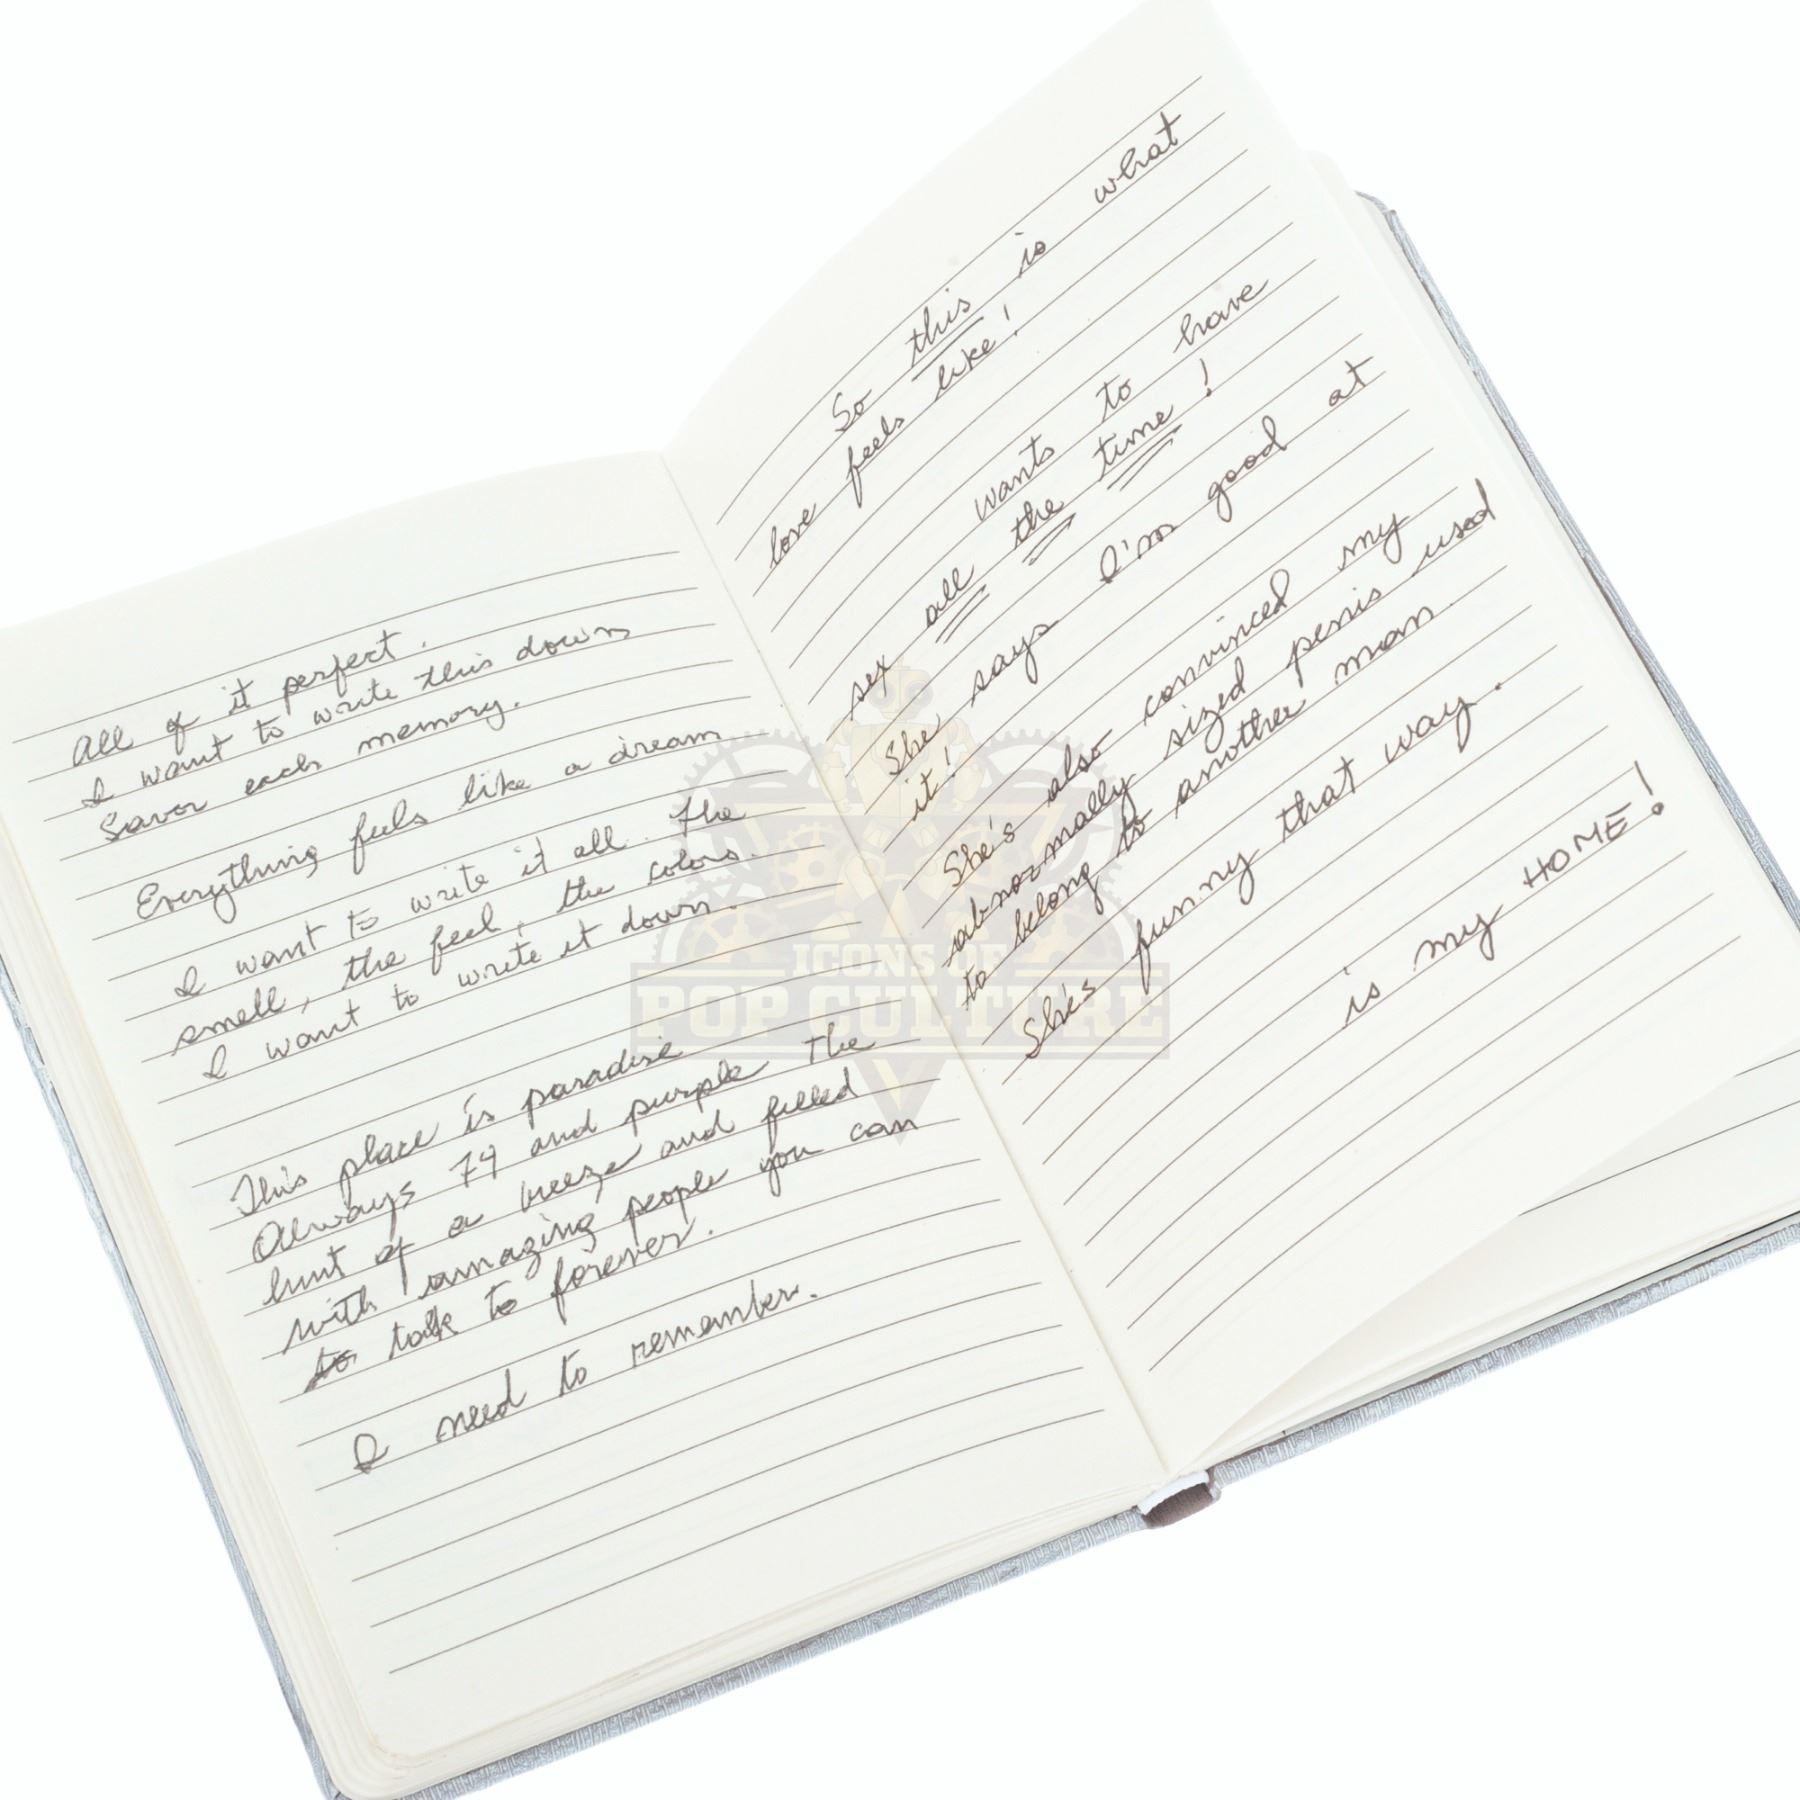 All of it perfect.
I want to write this down
Savor each memory.
Everything feels like a dream
I want to write it all. The
smell, the feel, the colors.
I want to write it down.
This place is paradise
Always 74 and purple The
hint of a breeze and filled
with amazing people you can
to talk to forever.
I need to remember.
So this is what
love feels like!
wants to have
sex all the time!
She says I'm good at
it!
She's also convinced my
abnormally sized penis used
to belong to another man
She's funny that way.
is my HOME!
ICONS OF
POP CULTURE